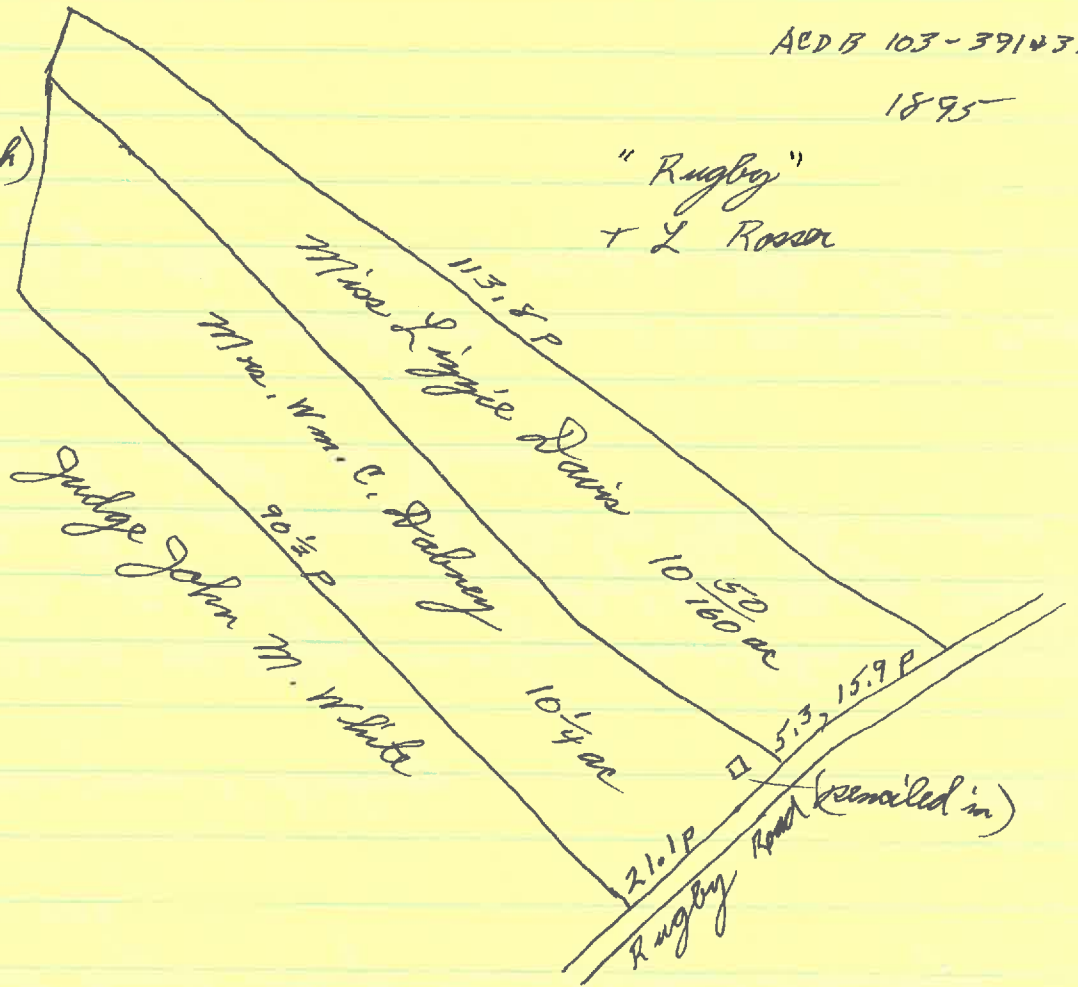 ACDB 103-391+3
1895
"Rugby"
T L Rosser
h)
113.8 P
Miss Lizzie Davis
10 50/160 ac
Mrs. Wm. C. Dabney
10 1/4 ac
90 1/2 P
Judge John M. White
5.3, 15.9 P
21.1 P
Rugby Road (penciled in)